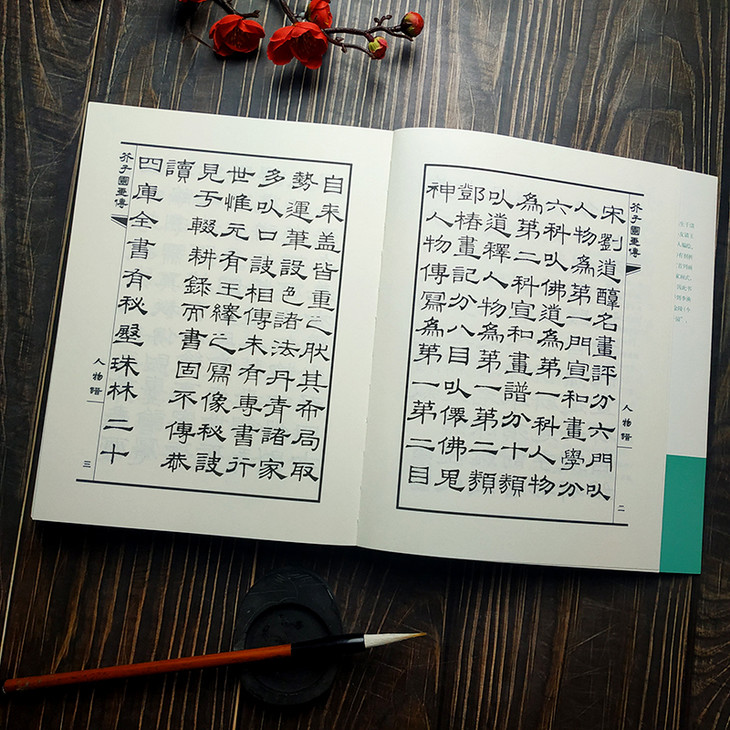 芥子園畫傳
人物譜
二
宋劉道醇名畫評分六門㕥
人物為第一門宣和畫學分
六科㕥佛道為第一科人物
為第二科宣和畫譜分十類
㕥道釋人物為第一第二類
鄧椿畫記分八目㕥僊佛鬼
神人物傳寫為第一第二目
自來蓋皆重之肰其布局取
勢運筆設色諸法丹青諸家
多㕥口訣相傳未有專書行
世惟元有王繹之寫像秘訣
見于輟耕錄而書固不傳恭
讀
四庫全書有秘殿珠林二十
芥子園畫傳
人物譜
三